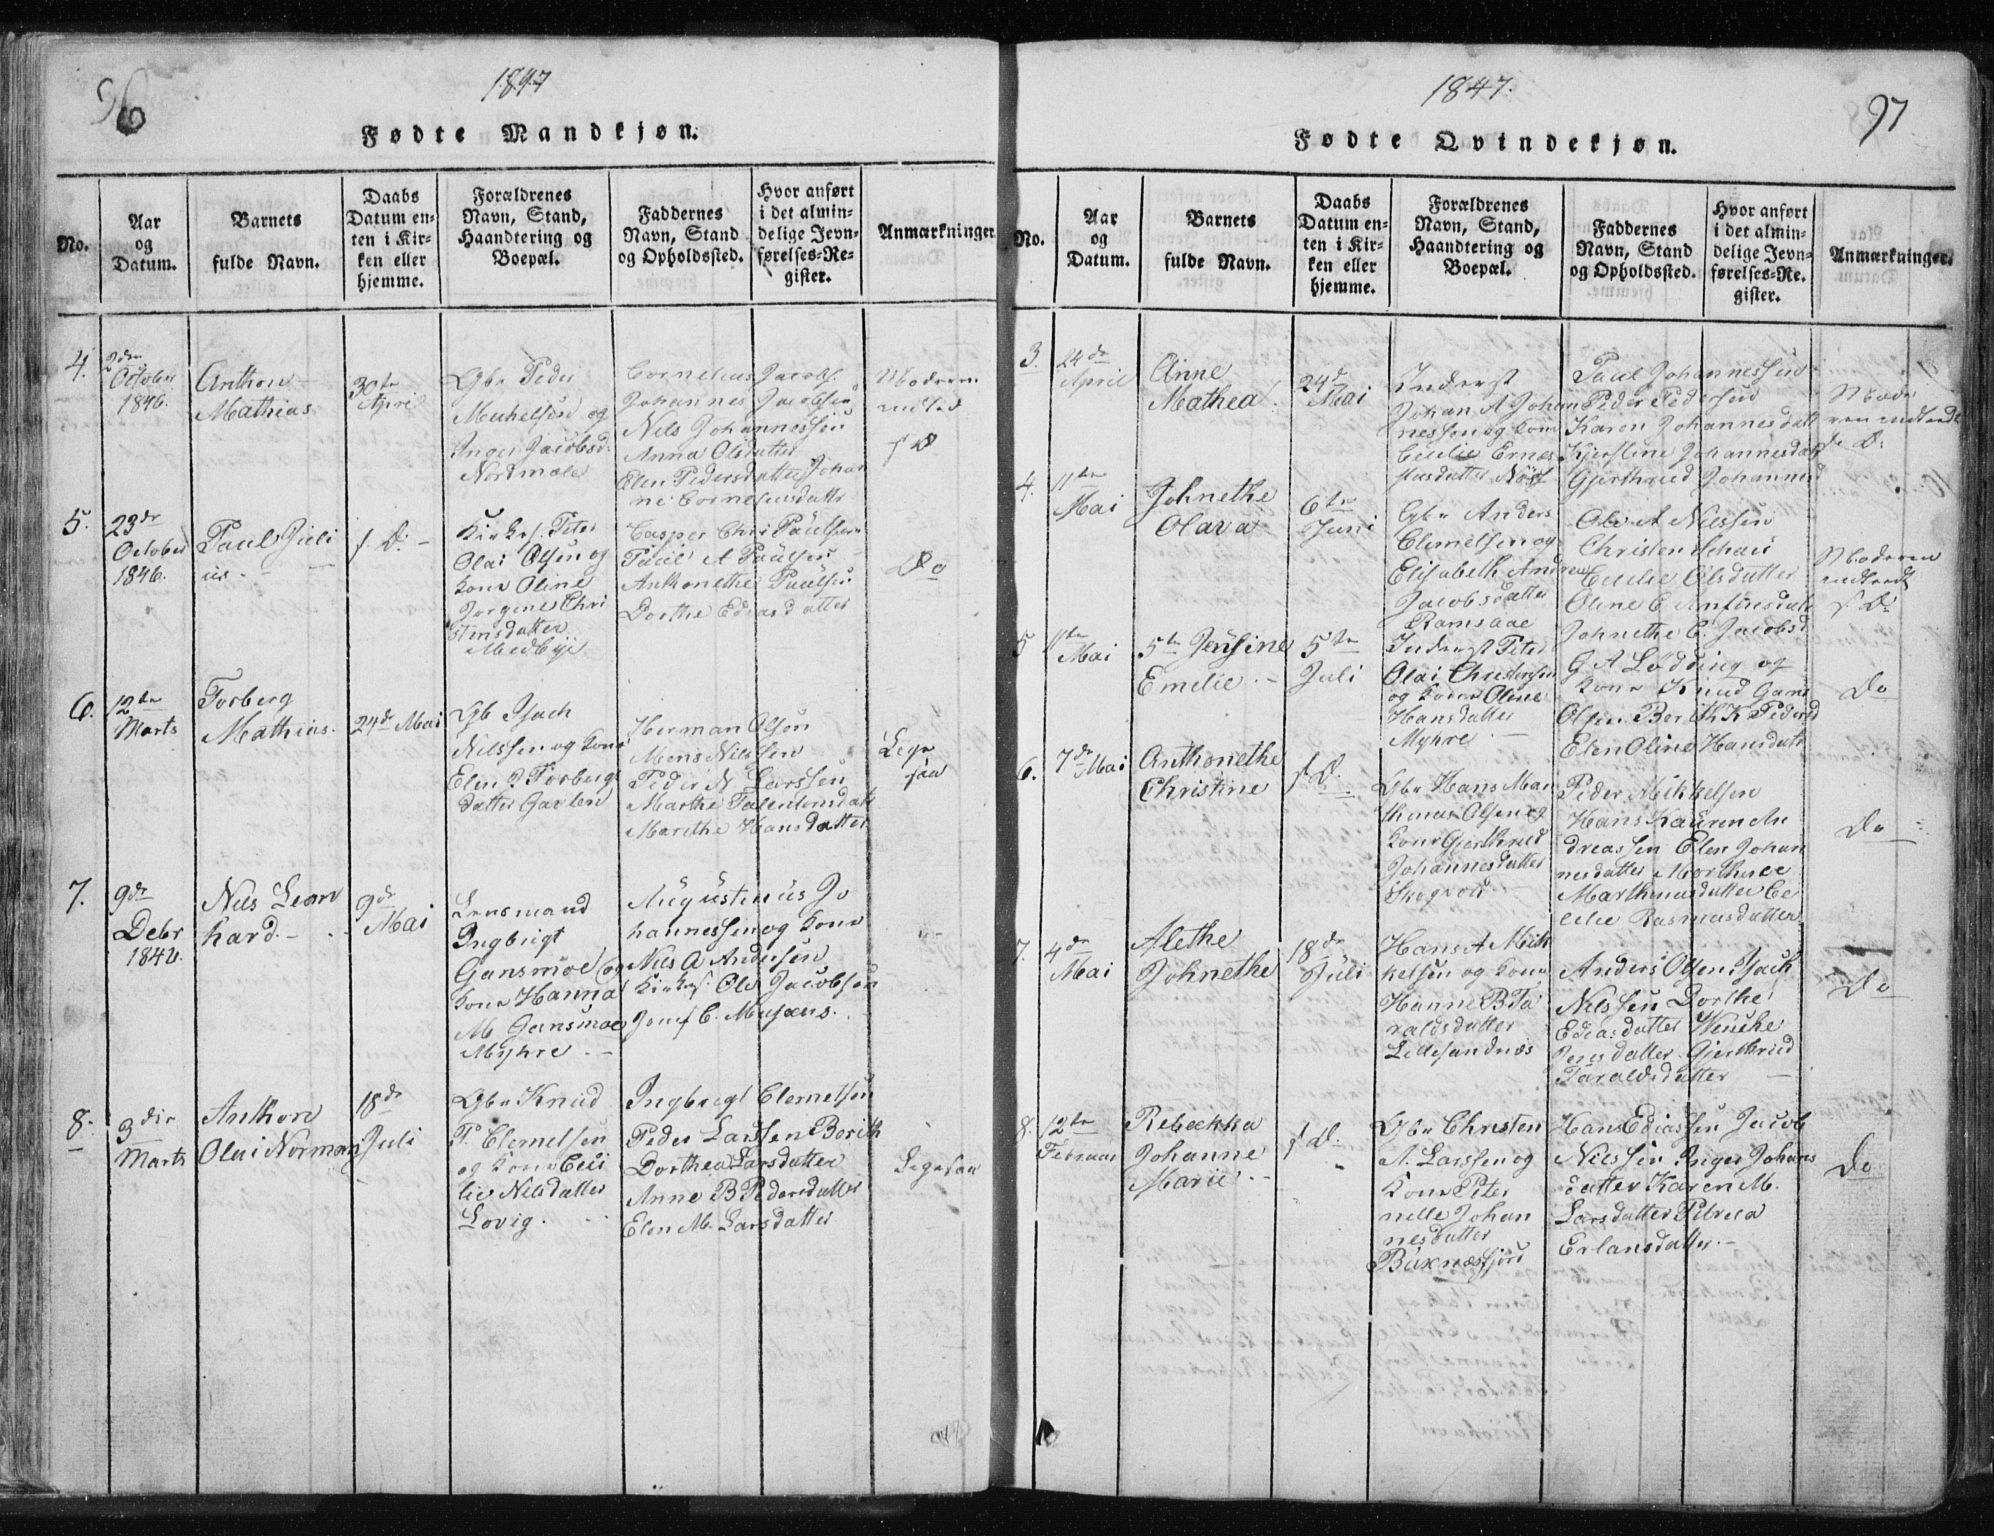 96
1847
Fødte Mandkjøn.
No.
Aar
og
Datum.
Barnets
fulde Navn.
Daabs
Datum en-
ten i Kir-
ken eller
hjemme.
Forældrenes
Navn, Stand,
Haandtering og
Boepæl.
Faddernes
Navn, Stand
og Opholdssted.
Hvor anført
i det almin-
delige Jevn-
førelses-Re-
gister.
Anmærkninger.
4.
October
1846.
Anthon
Mathias
April
Gbr Peder
Mikelsen og
Inger Jacobsd:
Nordmele
Cornelius Jacobs.
Johannes Jacobsen
Nils Johannessen
Anna Olsdatter
Elen Pedersdatter Johan
ne Corneliusdattr
Moderen
f D
5.
23de
October
1846.
Paul Juli
us.
f. D:
Peter
Olai Olsen og
Kone Oline
Jørgine Chri
stinsdatter
Medbye
Casper Chri Paulsen
Paul A Paulsen
Anthonethe Paulsen
Dorthe Ediasdatter
Do
6.
12te
Marts
Torberg
Mathias.
24de Mai
Gb Isach
Nilssen og Kone
Elen I. Torbergs
datter Gaasen
Herman Olsen
Mons Nilssen
Peder N Larssen
Marthe
Marethe Hansdatter
Lege
saa
7.
9de
Debr
1846.
Nils Leon
hard.
9de
Mai
Lensmand
Ingbrigt
Gansmoe og
Kone Hanna
M Gansmoe
Myhre
Augustinus Jo
hannessen og Kone
Nils A Andersen
Ole Jacobsen
Josef C. Musæus.
8.
3die
Marts
Anthon
Olai Normann
18de
Juli
Gbr Knud
P. Clemetsen
og Kone Ceci
lie Nilsdatter
Lovig.
Ingbrigt Clemetsen
Peder Larssen Borith
Dorthea Larsdatter
Anne B Pedersdatter
Elen M. Larsdatter
Ligesaa
1847.
97
Fødte Qvindekjøn.
No.
Aar
og
Datum.
Barnets
fulde Navn.
Daabs
Datum en-
ten i Kir-
ken eller
hjemme.
Forældrenes
Navn, Stand,
Haandtering og
Boepæl.
Faddernes
Navn, Stand
og Opholdssted.
Hvor anført
i det almin-
delige Jevn-
førelses-Re-
gister.
Anmærkninger.
3.
24de
April
Anne
Mathea.
24de
Mai
Inderst
Johan A Johan
nessen og Kone
Cecilie Ernes
tusdatter
Paul Johannessen
Peder Pedersen
Karen Johannesdatt
Kjerstine Johannesdatt
Gjerthrud Johannesd
Mode
ren indledt
f. D:
4.
11te
Mai
Johnethe
Olava
6te
Juni
Gbr Anders
Clemetsen og
Elisabeth Andrea
Jacobsdatter
Ramsaae
Ole A Nilssen
Christen
Cecilie Olsdatter
Oline C Antonsdatt
Johnethe C. Jacobsd
Moderen
indledt
f D:
5
11te
Mai
5te Jensine
Emelie.
5te
Juli
Inderst Peter
Olai Christensen
og Kone Oline
Hansdatter
Myhre
G A Lødding og
Kone Knud Gans
Olsen Borith K Pedersd
Elen Oline Hansdatt
Do
6.
7de Mai
Anthonethe
Christine
f D.
Gbr Hans Mar
thinus Olsen og
Kone Gjerthrud
Johannesdatter
Skogvold
Peder Mikkelsen
Hans Lauren An
dreassen Elen Johan
nesdatter
Marthinusdatter Ce
cilie Rasmusdatter
Do
7.
4de
Mai
Alethe
Johnethe
18de
Juli
Hans A Mik
kelsen og Kone
Hanne B Ta
raldsdatter
Lillesandnæs
Anders Olsen Isach
Nilssen Dorthe
Ediasdatter Wenche
Jensdatter Gjerthrud
Taraldsdatter
Do
8.
12te
Februar
Rebekka
Johanne
Marie.
f D.
Gbr Christen
A. Larssen og
Kone Peter
nelle Johan
nesdatter
Buxnæsfjord
Hans Ediassen Jacob
Nilssen Inger Johans
datter Karen M.
Larsdatter Petrea
Erlandsdatter
Do